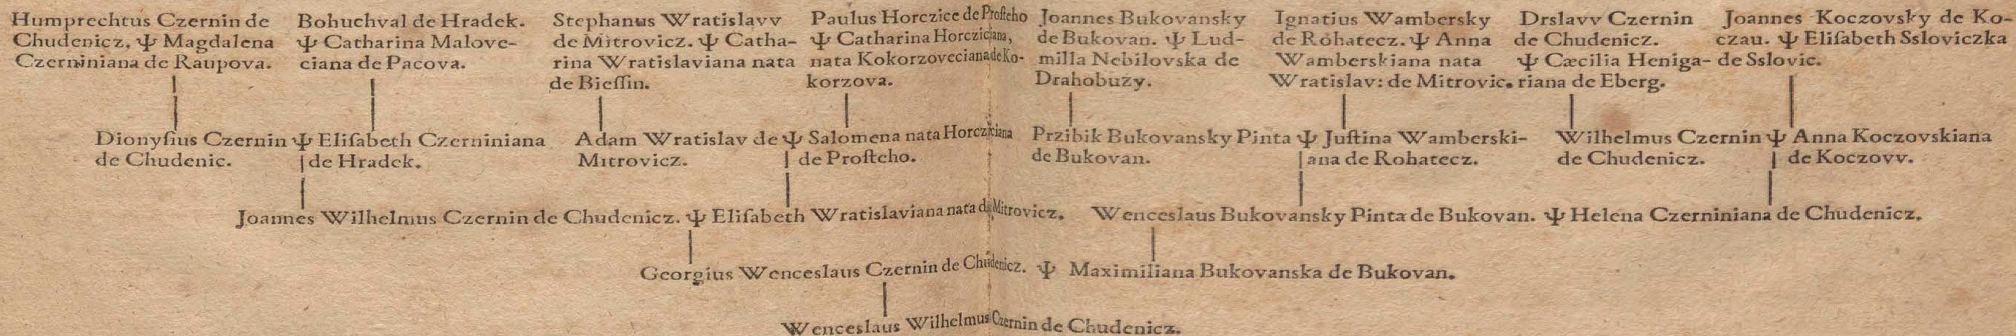 Humprechtus Czernin de
Chudenicz, Ψ Magdalena
Czerniniana de Raupova.
Bohuchval de Hradek.
Ψ Catharina Malove-
ciana de Pacova.
Stephanus Wratislavv
de Mitrovicz. Ψ Catha-
rina Wratislaviana nata
de Bieſſin.
Paulus Horczice de Proſtcho
Ψ Catharina Horcziciana,
nata Kokorzoveciana de Ko-
korzova.
Joannes Bukovansky
de Bukovan. Ψ Lud-
milla Nebilovska de
Drahobuzy.
Ignatius Wambersky
de Rohatecz. Ψ Anna
Wamberskiana nata
Wratislav: de Mitrovic.
Drslavv Czernin
de Chudenicz.
Ψ Cæcilia Heniga-
riana de Eberg.
Joannes Koczovsky de Ko-
czau. Ψ Eliſabeth Ssloviczka
de Sslovic.
Dionyſius Czernin Ψ Eliſabeth Czerniniana
de Chudenic. de Hradek.
Adam Wratislav de Ψ Salomena nata Horcziciana
Mitrovicz. de Proſtcho.
Przibik Bukovansky Pinta Ψ Juſtina Wamberski-
de Bukovan. ana de Rohatecz.
Wilhelmus Czernin Ψ Anna Koczovskiana
de Chudenicz. de Koczovv.
Joannes Wilhelmus Czernin de Chudenicz. Ψ Eliſabeth Wratislaviana nata de Mitrovicz.
Wenceslaus Bukovansky Pinta de Bukovan. Ψ Helena Czerniniana de Chudenicz.
Georgius Wenceslaus Czernin de Chudenicz. Ψ Maximiliana Bukovanska de Bukovan.
Wenceslaus Wilhelmus Czernin de Chudenicz.